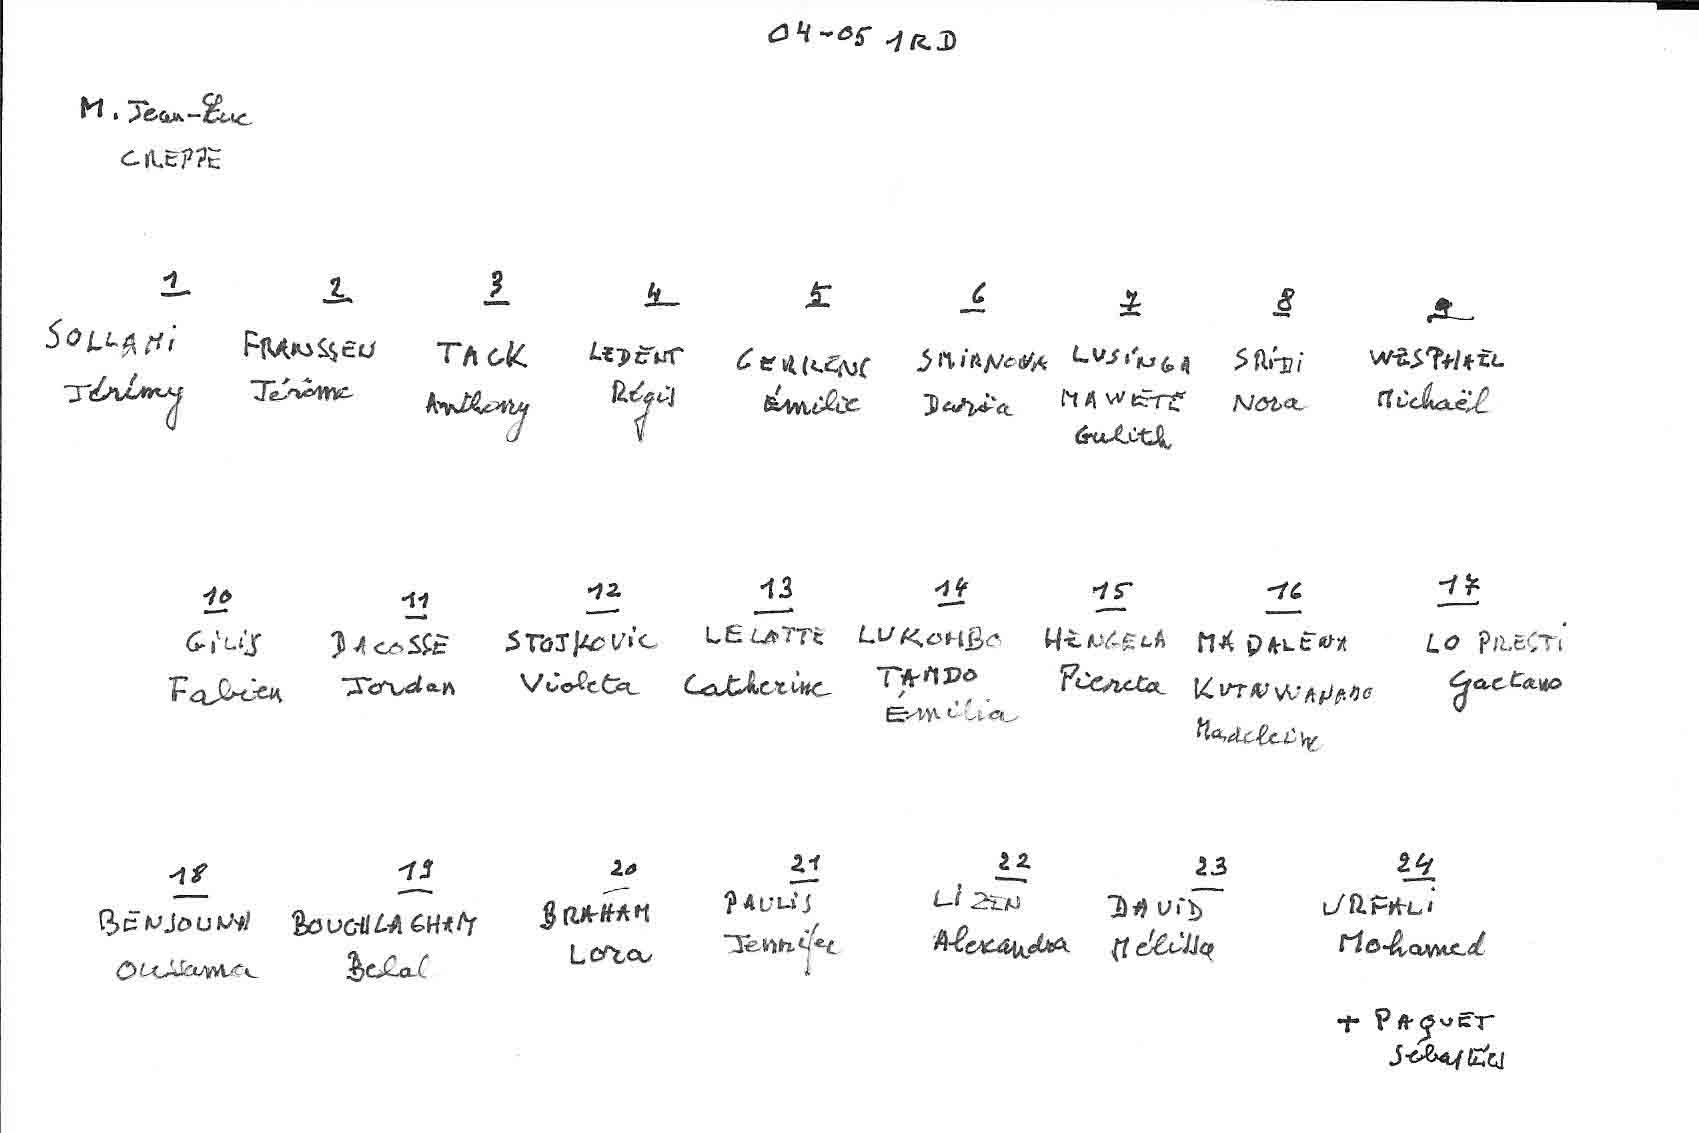 04-05 1RD
M. Jean-Luc
CREPPE
1 2 3 4 5 6 7 8 9
SOLLAMI FRANSSEN TACK LEDENT GERKENS SMIRNOVA LUSINGA SRIDI WESPHAEL
Jérémy Jérôme Anthony Régis Émilie Daria MAWETE Nora Michaël
Gulith
10 11 12 13 14 15 16 17
GILIS DACOSSE STOJKOVIC LELOTTE LUKOMBO HENGELA MADALENA LO PRESTI
Fabien Jordan Violeta Catherine TAMDO Piereta Gaetano
Émilia Madeleine
18 19 20 21 22 23 24
BENJOUNA BOUGHLAGHAM BRAHAM PAULIS LIZEN DAVID URFALI
Oussama Belal Lora Jennifer Alexandra Mélissa Mohamed
+ PAQUET
Sébastien